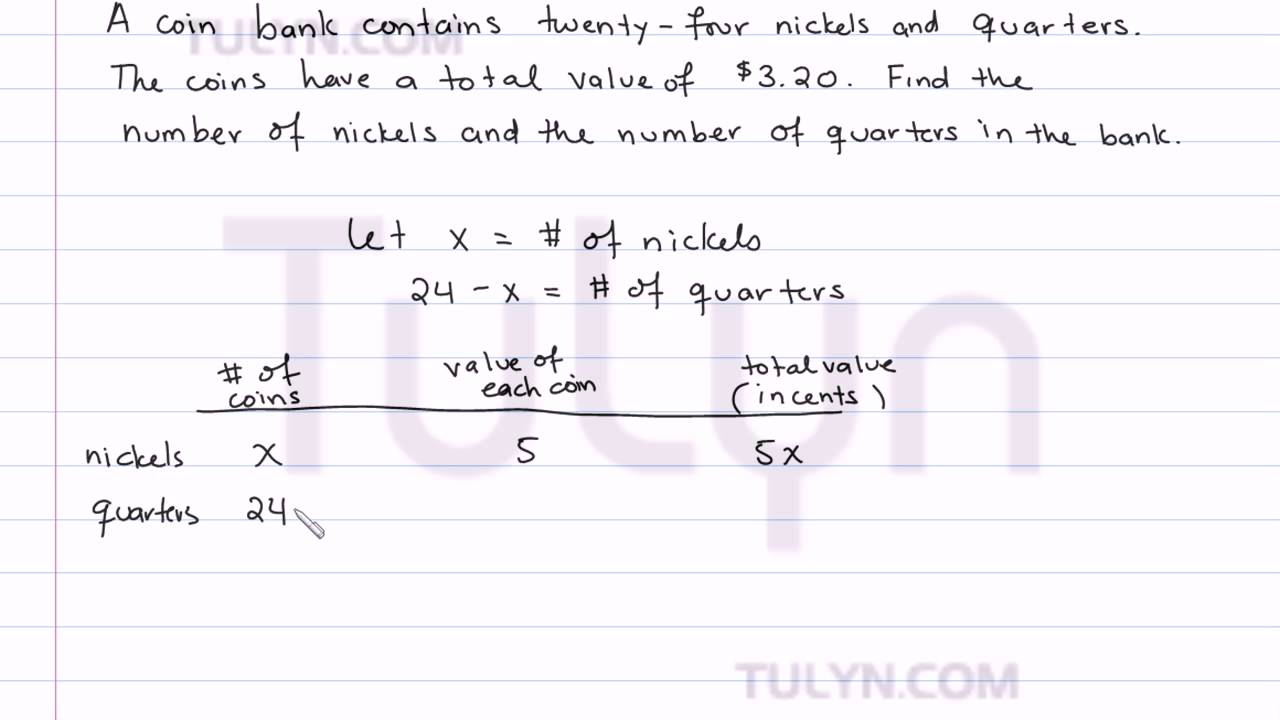 A coin bank contains twenty-four nickels and quarters.
TULYN.COM
The coins have a total value of $3.20. Find the
number of nickels and the number of quarters in the bank.
let x = # of nickels
24 - x = # of quarters
Tulyn
# of coins value of each coin total value (in cents)
nickels x 5 5x
quarters 24
TULYN.COM